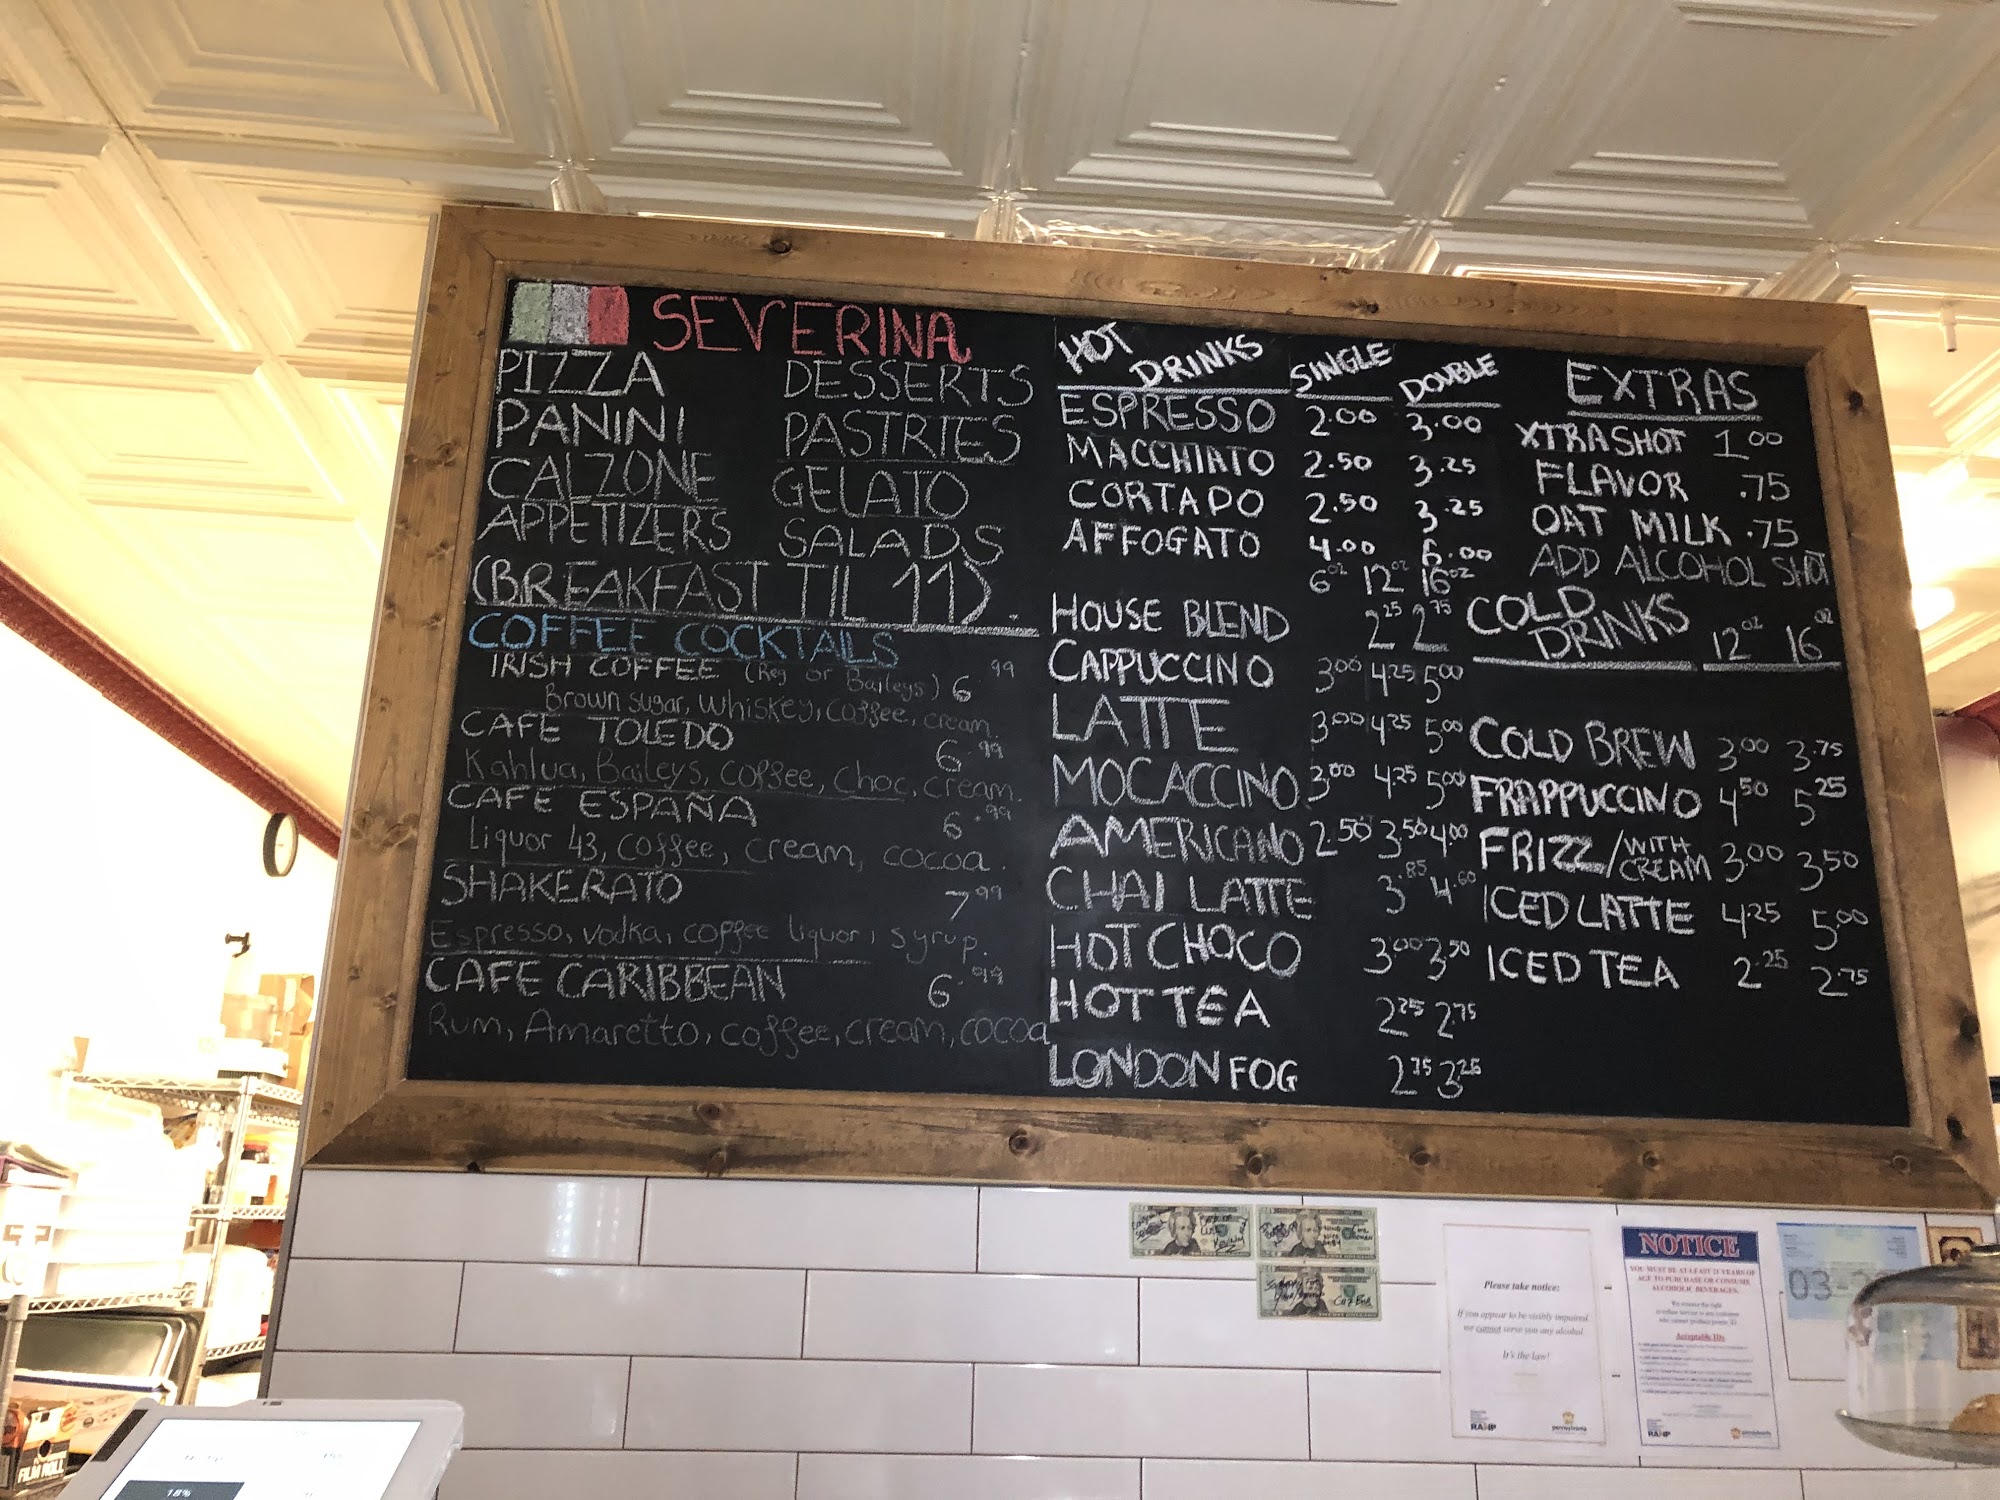 SEVERINA
PIZZA DESSERTS
PANINI PASTRIES
CALZONE GELATO
APPETIZERS SALADS
(BREAKFAST TIL 11).
COFFEE COCKTAILS
IRISH COFFEE (Reg or Baileys) 6.99
Brown sugar, whiskey, coffee, cream.
CAFE TOLEDO 6.99
Kahlua, Baileys, coffee, choc, cream.
CAFE ESPAÑA 6.99
Liquor 43, coffee, cream, cocoa.
SHAKERATO 7.99
Espresso, vodka, coffee liquor, syrup.
CAFE CARIBBEAN 6.99
Rum, Amaretto, coffee, cream, cocoa
HOT DRINKS SINGLE DOUBLE
ESPRESSO 2.00 3.00
MACCHIATO 2.50 3.25
CORTADO 2.50 3.25
AFFOGATO 4.00 6.00
6oz 12oz 16oz
HOUSE BLEND 2.25 2.75
CAPPUCCINO 3.00 4.25 5.00
LATTE 3.00 4.25 5.00
MOCACCINO 3.00 4.25 5.00
AMERICANO 2.50 3.50 4.00
CHAI LATTE 3.85 4.60
HOT CHOCO 3.00 3.50
HOT TEA 2.25 2.75
LONDON FOG 2.75 3.25
EXTRAS
XTRA SHOT 1.00
FLAVOR .75
OAT MILK .75
ADD ALCOHOL SHOT
COLD DRINKS 12oz 16oz
COLD BREW 3.00 3.75
FRAPPUCCINO 4.50 5.25
FRIZZ/WITH CREAM 3.00 3.50
ICED LATTE 4.25 5.00
ICED TEA 2.25 2.75
Please take notice:
If you appear to be visibly impaired
we cannot serve you any alcohol.
It's the law!
RAMP pennsylvania
NOTICE
YOU MUST BE AT LEAST 21 YEARS OF
AGE TO PURCHASE OR CONSUME
ALCOHOLIC BEVERAGES.
We reserve the right
to refuse service to any customer
who cannot produce proper ID
Acceptable IDs
RAMP pennsylvania
03-
FILM ROLL
18%